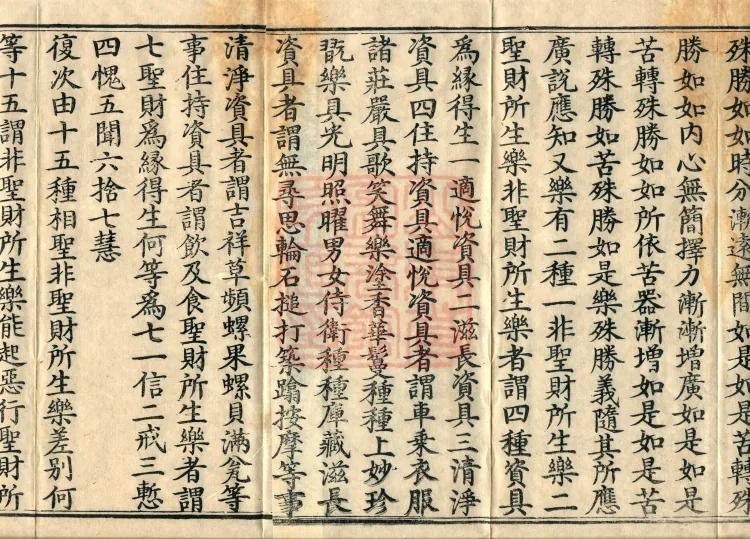 殊勝如如時分漸遠無間如是如是苦轉殊
勝如如内心無簡擇力漸漸增廣如是如是
苦轉殊勝如如所依苦器漸增如是如是苦
轉殊勝如苦殊勝如是樂殊勝義隨其所應
廣說應知又樂有二種一非聖財所生樂二
聖財所生樂非聖財所生樂者謂四種資具
爲緣得生一適悅資具二滋長資具三清淨
資具四住持資具適悅資具者謂車乘衣服
諸莊嚴具歌笑舞樂塗香華鬘種種上妙珍
翫樂具光明照曜男女侍衛種種庫藏滋長
資具者謂無尋思輪石搥打築蹹按摩等事
清淨資具者謂吉祥草頻螺果螺貝滿瓮等
事住持資具者謂飲及食聖財所生樂者謂
七聖財爲緣得生何等爲七一信二戒三慙
四愧五聞六捨七慧
復次由十五種相聖非聖財所生樂差別何
等十五謂非聖財所生樂能起惡行聖財所